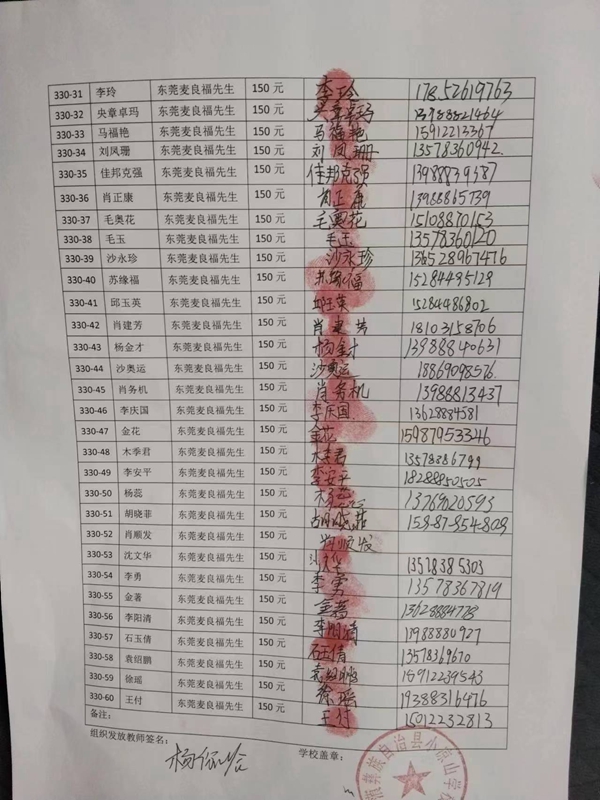 330-31 李玲 东莞麦良福先生 150 元 李玲 17852619763
330-32 央章卓玛 东莞麦良福先生 150 元 央章卓玛 13988821464
330-33 马福艳 东莞麦良福先生 150 元 马福艳 15912213367
330-34 刘凤珊 东莞麦良福先生 150 元 刘凤珊 13578360942
330-35 佳邦克强 东莞麦良福先生 150 元 佳邦克强 13988839587
330-36 肖正康 东莞麦良福先生 150 元 肖正康 13988865739
330-37 毛奥花 东莞麦良福先生 150 元 毛奥花 15108870153
330-38 毛玉 东莞麦良福先生 150 元 毛玉 13578360120
330-39 沙永珍 东莞麦良福先生 150 元 沙永珍
330-40 苏缘福 东莞麦良福先生 150 元 苏缘福 15284495129
330-41 邱玉英 东莞麦良福先生 150 元 邱玉英 15284486802
330-42 肖建芳 东莞麦良福先生 150 元 肖建芳 18103158706
330-43 杨金才 东莞麦良福先生 150 元 13988840631
330-44 沙奥运 东莞麦良福先生 150 元 沙奥运 18869098576
330-45 肖务机 东莞麦良福先生 150 元 肖务机 13988813437
330-46 李庆国 东莞麦良福先生 150 元 李庆国 13628884581
330-47 金花 东莞麦良福先生 150 元 金花 15987953346
330-48 木季君 东莞麦良福先生 150 元 木季君 13578386799
330-49 李安平 东莞麦良福先生 150 元 李安平 18288850505
330-50 杨蕊 东莞麦良福先生 150 元 杨蕊 13769020593
330-51 胡晓菲 东莞麦良福先生 150 元 胡晓菲 158-87-854-809
330-52 肖顺发 东莞麦良福先生 150 元 肖顺发
330-53 沈文华 东莞麦良福先生 150 元 沈文华 13578385303
330-54 李勇 东莞麦良福先生 150 元 李勇 13578367819
330-55 金著 东莞麦良福先生 150 元 金著 13628884778
330-56 李阳清 东莞麦良福先生 150 元 李阳清 13988880927
330-57 石玉倩 东莞麦良福先生 150 元 石玉倩 13578369670
330-58 袁绍鹏 东莞麦良福先生 150 元 袁绍鹏 15912239543
330-59 徐瑶 东莞麦良福先生 150 元 徐瑶 19388316476
330-60 王付 东莞麦良福先生 150 元 王付 15012232813
备注：
组织发放教师签名： 学校盖章：
族自治县小凉山学校